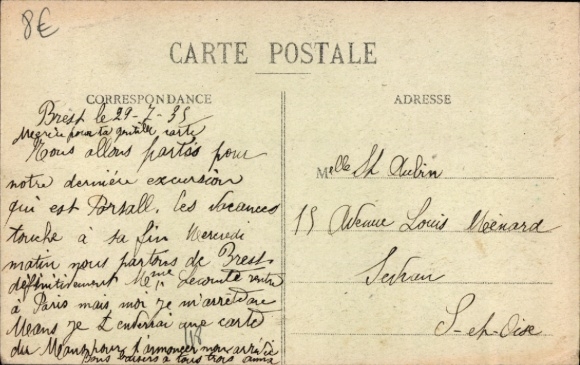 8€
CARTE POSTALE
CORRESPONDANCE
ADRESSE
Brest le 29-7-35
Merci pour ta gentille carte
Nous allons partis pour
notre dernière excursion
qui est Porsall. Les vacances
touche à sa fin Mercredi
matin nous partons de Brest
définitivement Mme Lecomte rentre
à Paris mais moi je m'arrête au
Mans je t'enverrai une carte
du Mans pour t'annoncer mon arrivée
Bons baisers à tous trois
Melle St Aubin
15 Avenue Louis Ménard
Sevran
S-et-Oise